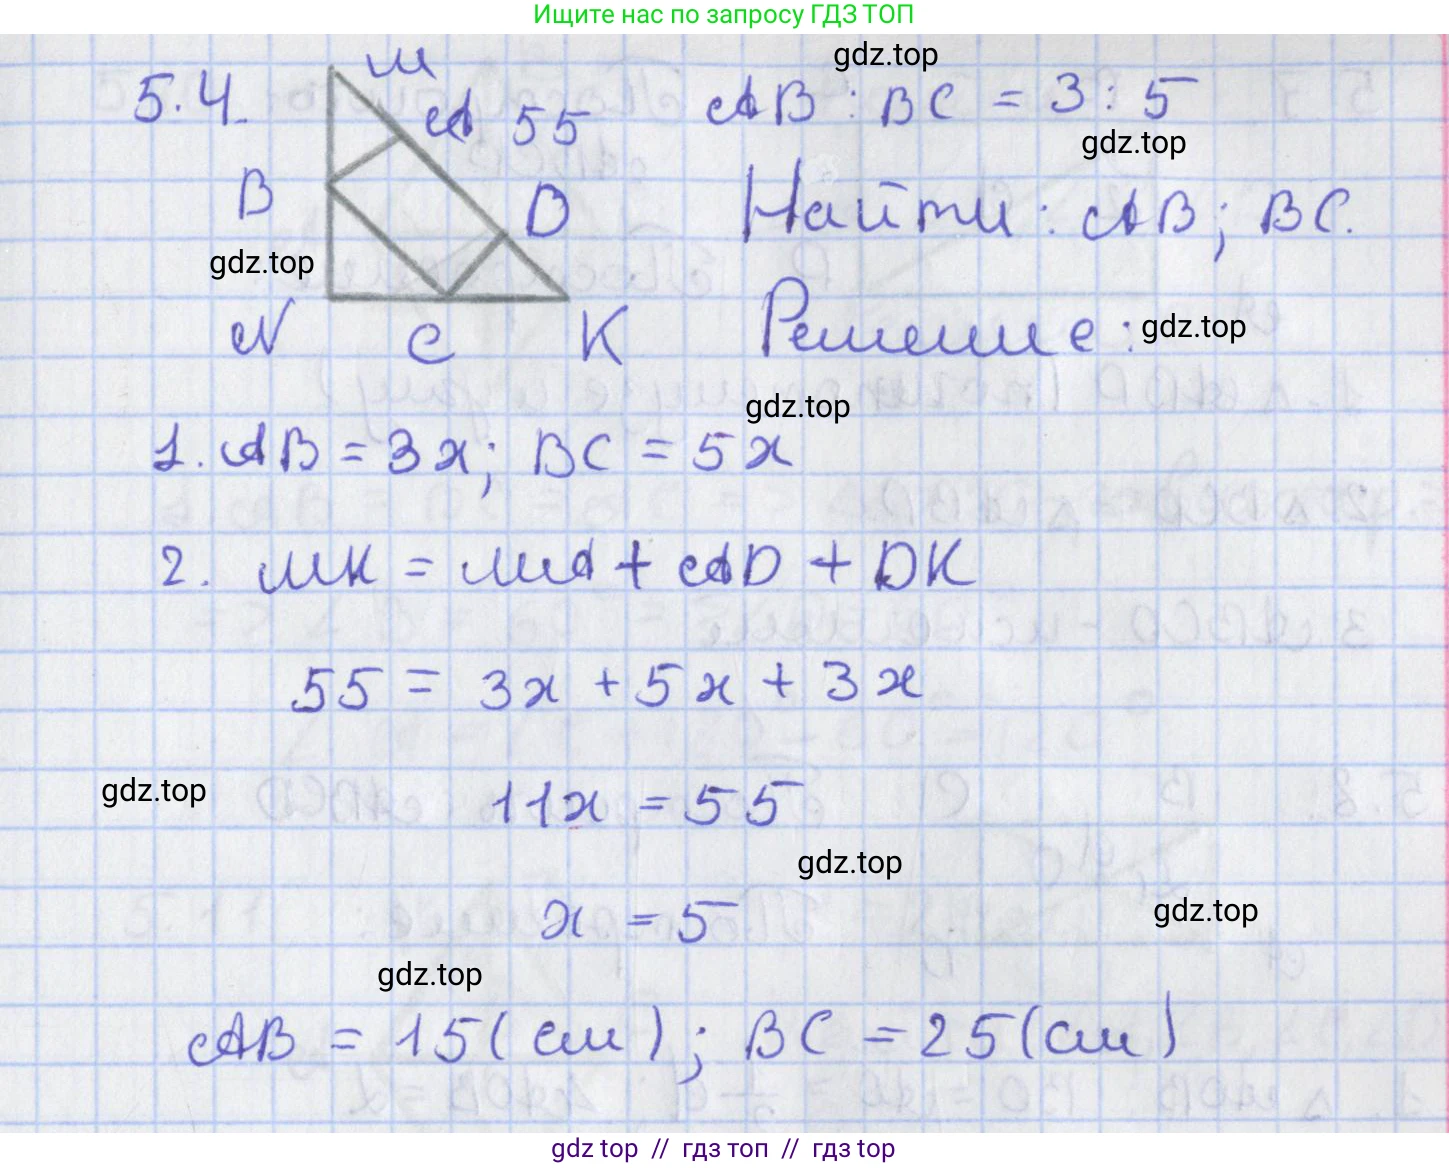 Ищите нас по запросу ГДЗ ТОП
gdz.top
5.4. M A 55 AB : BC = 3 : 5
gdz.top
B D Найти: AB; BC.
gdz.top
N C K Решение:
gdz.top
gdz.top
1. AB = 3x; BC = 5x
2. MK = MA + AD + DK
55 = 3x + 5x + 3x
gdz.top
11x = 55
gdz.top
x = 5
gdz.top
gdz.top
AB = 15 (см); BC = 25 (см)
gdz.top // гдз топ // гдз top